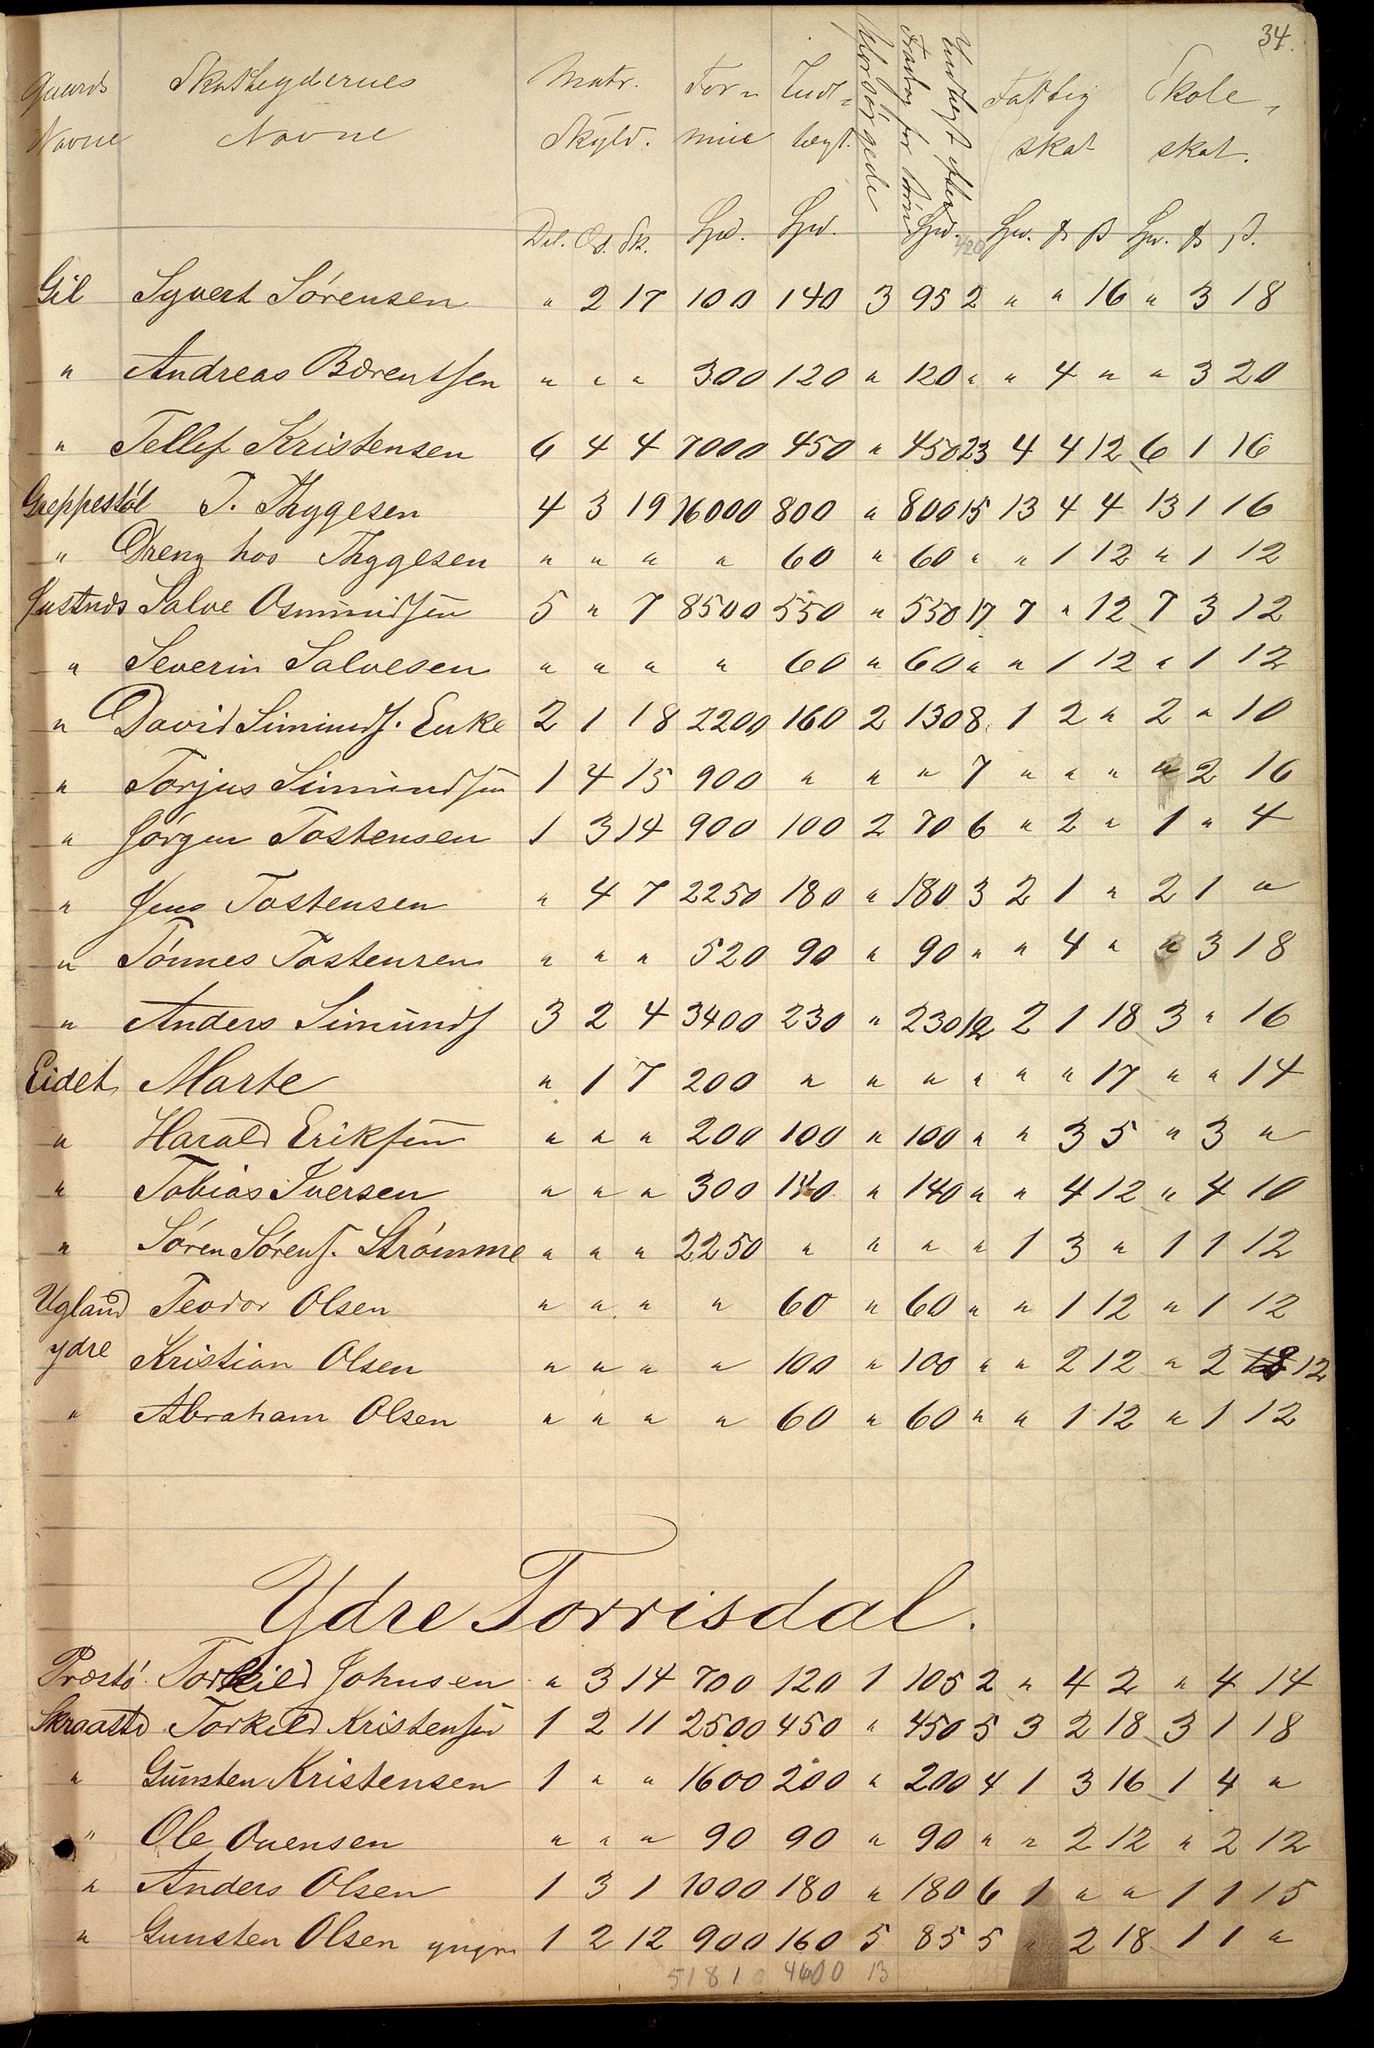 34.
Gaards Skatteydernes Matr. For- Ind- Forsørgede Indtægt efter Fradrag for Børn Fattig Skole-
Navne Navne Skyld. mue tægt. skat skat.
Dal. Ort. Sk. Spd. Spd. Spd. Spd. ß Spd.
Gil Syvert Sørensen " 2 17 100 140 3 95 2 " " 16 " 3 18
" Andreas Bærentsen " " " 300 120 " 120 " " 4 " " 3 20
" Tellef Kristensen 6 4 4 7000 450 " 450 23 4 4 12 6 1 16
Greppestøl T. Thygesen 4 3 19 16000 800 " 800 15 13 4 4 13 1 16
" Dreng hos Thygesen " " " " 60 " 60 " " 1 12 " 1 12
Salve Osmundsen 5 " 7 8500 550 " 550 17 7 " 12 7 3 12
" Severin Salvesen " " " " 60 " 60 " " 1 12 " 1 12
" David Simunds. Enke 2 1 18 2200 160 2 130 8 1 2 " 2 " 10
" Torjus Simundsen 1 4 15 900 " " " 7 " " " " 2 16
" Jørgen Tostensen 1 3 14 900 100 2 70 6 " 2 " 1 " 4
" Jens Tostensen " 4 7 2250 180 " 180 3 2 1 " 2 1 "
" Tønnes Tostensen " " " 520 90 " 90 " " 4 " " 3 18
" Anders Simunds 3 2 4 3400 230 " 230 12 2 1 18 3 " 16
Eidet Marte " 1 7 200 " " " " " " 17 " " 14
" Harald Eriksen " " " 200 100 " 100 " " 3 5 " 3 "
" Tobias Iversen " " " 300 140 " 140 " " 4 12 " 4 10
" Søren Sørens. Strømme " " " 2250 " " " " 1 3 " 1 1 12
Ugland Teodor Olsen " " " " 60 " 60 " " 1 12 " 1 12
ydre Kristian Olsen " " " " 100 " 100 " " 2 12 " 2 12
" Abraham Olsen " " " " 60 " 60 " " 1 12 " 1 12
Ydre Torrisdal.
Præstø. Torkild Johnsen " 3 14 700 120 1 105 2 " 4 2 " 4 14
Skraastad Torkild Kristensen 1 2 11 2500 450 " 450 5 3 2 18 3 1 18
" Gunsten Kristensen 1 " " 1600 200 " 200 4 1 3 16 1 4 "
" Ole Ouensen " " " 90 90 " 90 " " 2 12 " 2 12
" Anders Olsen 1 3 1 1000 180 " 180 6 1 " " 1 1 15
" Gunsten Olsen yngre 1 2 12 900 160 5 85 5 " 2 18 1 1 "
5181 4600 13